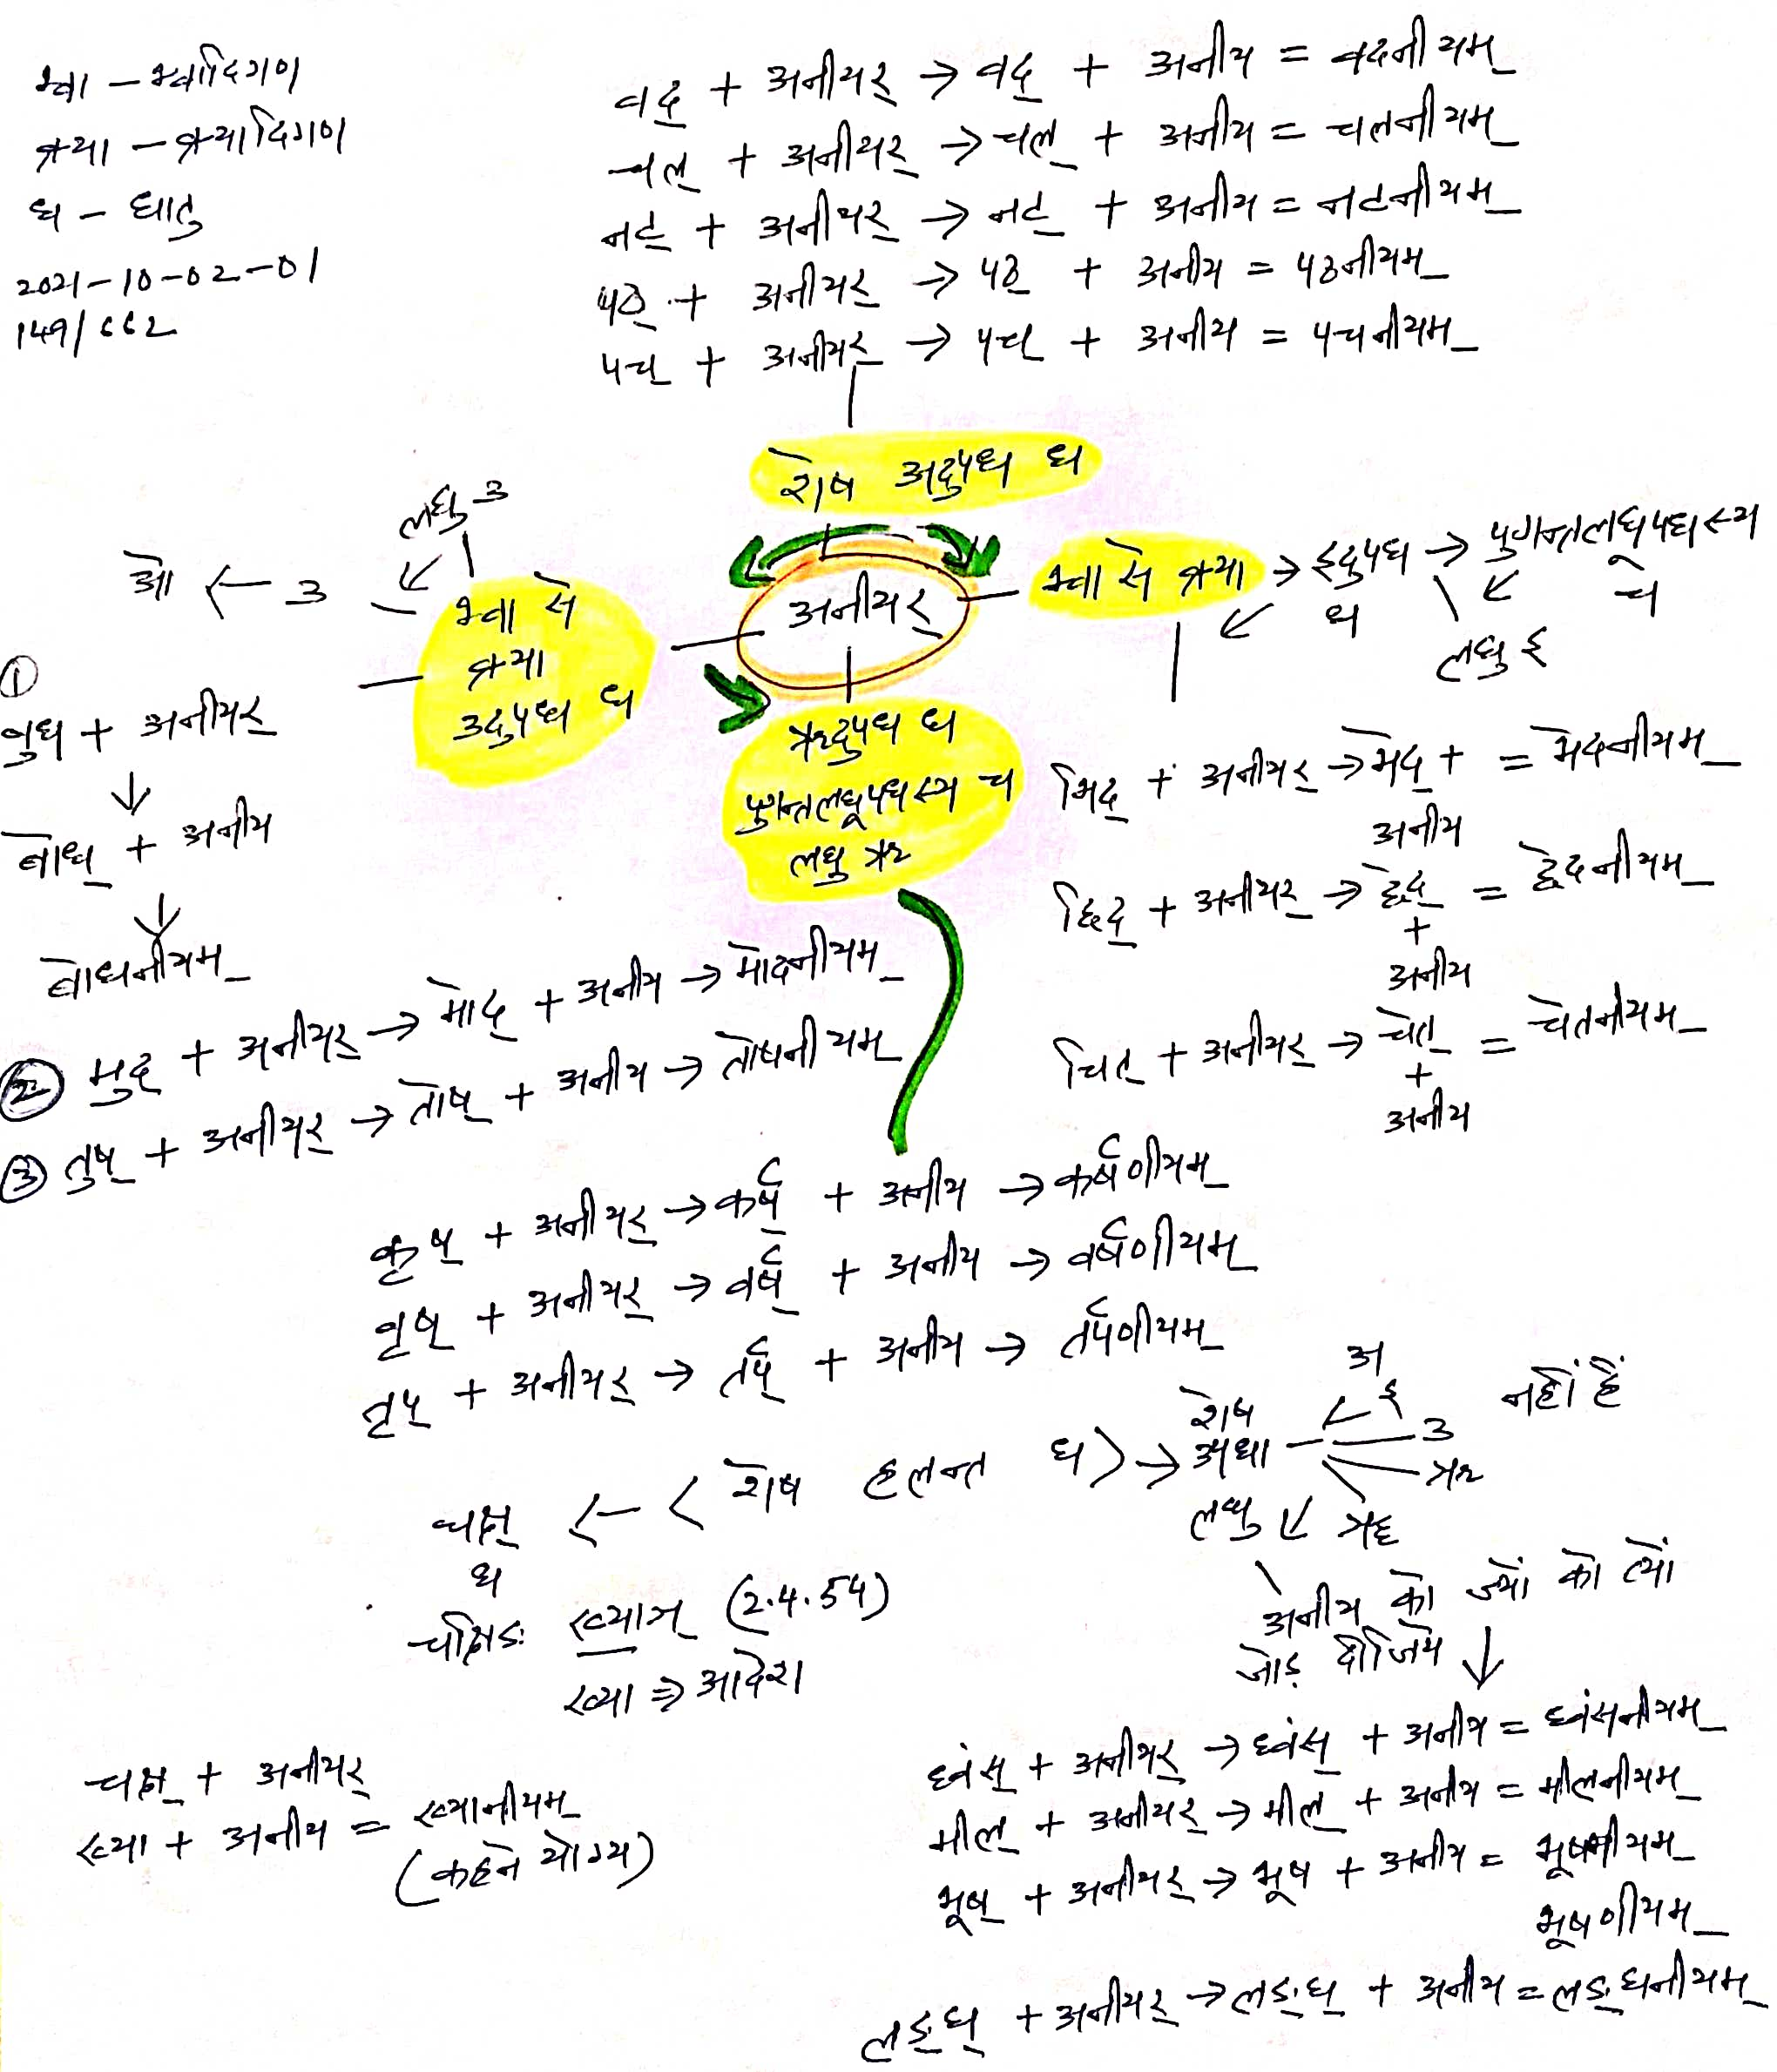 भ्वा – भ्वादिगण
क्र्या – क्र्यादिगण
ध – धातु
2021-10-02-01
149/662
वद् + अनीयर् → वद् + अनीय = वदनीयम्
चल् + अनीयर् → चल् + अनीय = चलनीयम्
नट् + अनीयर् → नट् + अनीय = नटनीयम्
पठ् + अनीयर् → पठ् + अनीय = पठनीयम्
पच् + अनीयर् → पच् + अनीय = पचनीयम्
शेष अदुपध ध
अनीयर्
लघु उ
ओ ← उ
भ्वा से
क्र्या
उदुपध ध
भ्वा से क्र्या → इदुपध → पुगन्तलघूपधस्य
ध
च
लघु इ
ऋदुपध ध
पुगन्तलघूपधस्य च
लघु ऋ
①
बुध + अनीयर्
↓
बोध् + अनीय
↓
बोधनीयम्
② मुद् + अनीयर् → मोद् + अनीय → मोदनीयम्
③ तुष् + अनीयर् → तोष् + अनीय → तोषनीयम्
भिद् + अनीयर् → भेद् + = भेदनीयम्
अनीय
छिद् + अनीयर् → छेद् = छेदनीयम्
+
अनीय
चित् + अनीयर् → चेत् = चेतनीयम्
+
अनीय
कृष् + अनीयर् → कर्ष् + अनीय → कर्षणीयम्
वृष् + अनीयर् → वर्ष् + अनीय → वर्षणीयम्
तृप् + अनीयर् → तर्प् + अनीय → तर्पणीयम्
चक्ष् ← < शेष हलन्त ध > → शेष
ध
अ
इ
उ
ऋ
नहीं हैं
लघु
चक्षिङः ख्याञ् (2.4.54)
ख्या ⇒ आदेश
अनीय को ज्यों को त्यों
जोड़ दीजिये ↓
चक्ष् + अनीयर्
ख्या + अनीय = ख्यानीयम्
(कहने योग्य)
ध्वंस् + अनीयर् → ध्वंस् + अनीय = ध्वंसनीयम्
मील् + अनीयर् → मील् + अनीय = मीलनीयम्
भूष् + अनीयर् → भूष + अनीय =
भूषणीयम्
लङ्घ् + अनीयर् → लङ्घ् + अनीय = लङ्घनीयम्